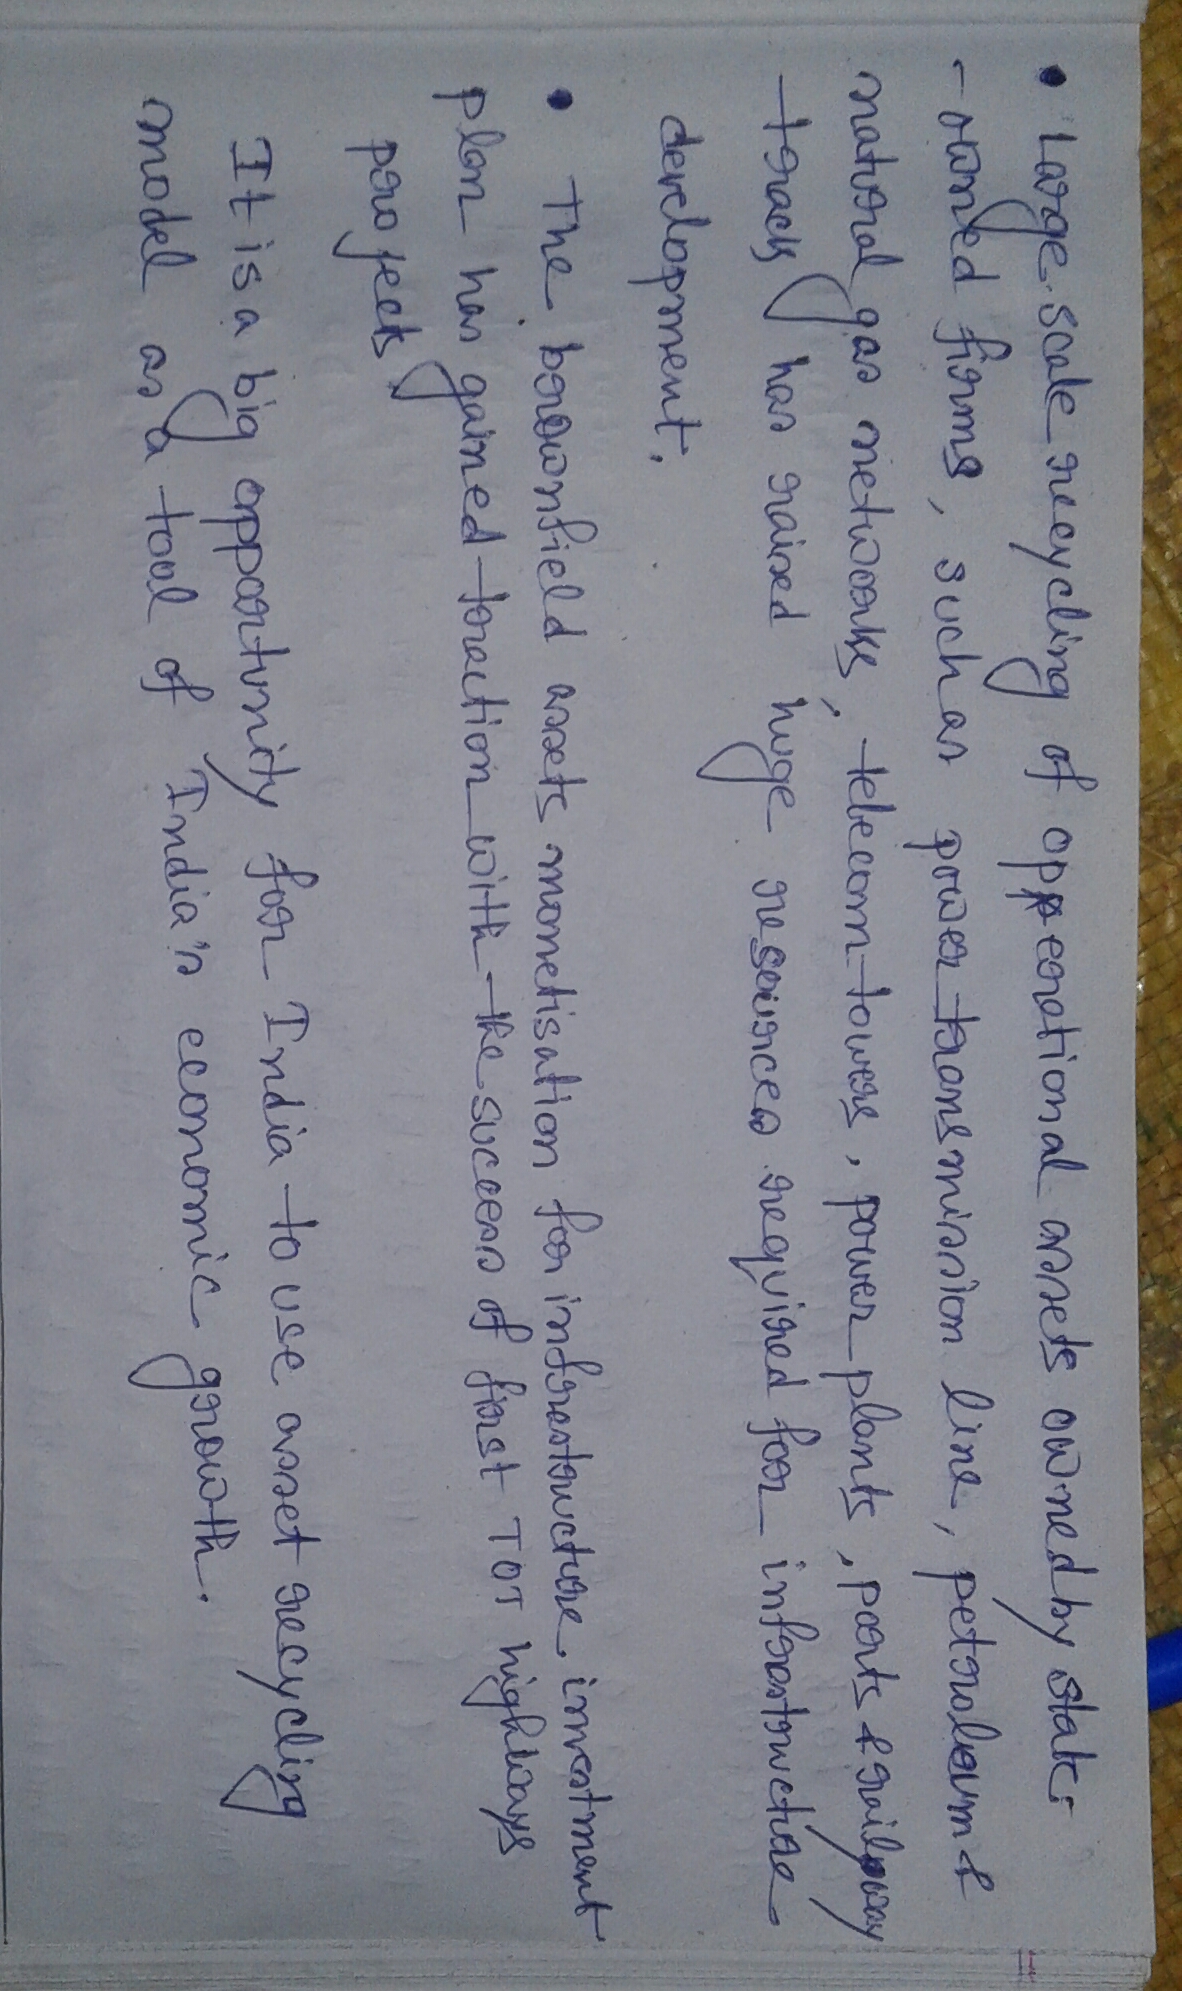 • Large scale recycling of opperational assets owned by state
-owned firms, such as power transmission line, petroleum &
natural gas networks, telecom towers, power plants, ports & railway
track has raised huge resources required for infrastructure
development.
• The brownfield assets monetisation for infrastructure investment
plan has gained traction with the success of first TOT highways
projects
It is a big opportunity for India to use asset recycling
model as a tool of India's economic growth.